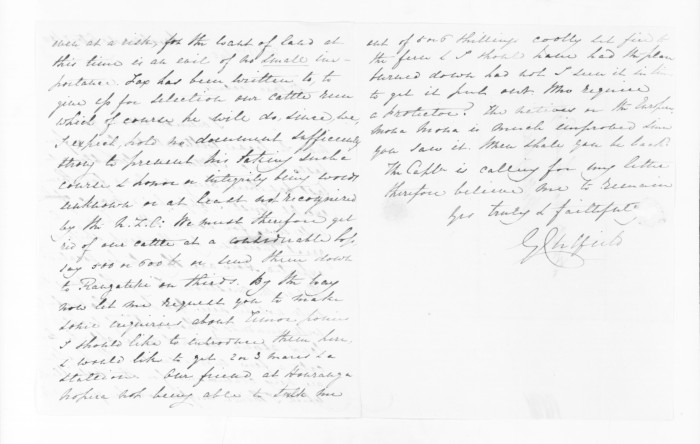 men at a risk, for the want of land at
this time is an evil of no small im-
portance Fox has been written to, to
give up for selection our cattle run
which of course he will do, since we,
I expect, hold no document sufficiently
strong to prevent his taking such a
course & honor or integrity being words
unknown or at least not recognized
by the N.Z.C: We must therefore get
rid of our cattle at a considerable loss,
say 500 or 600 £ or send them down
to Rangitiki on thirds. By the way
now let me request you to make
some inquiries about Timor ponies
I should like to introduce them here
& would like to get 2 or 3 mares & a
stallion. Our friend at
not being able to me
out of 5 or 6 shillings coolly set fire to
the fern & I should have had the place
burned down had not I seen it in time
to get it put out. Who requires
a Protector? the natives on the
is much improved since
you saw it. When shall you be back.
The Captn is calling for my letter
therefore believe me to remain
Yrs truly & faithfully